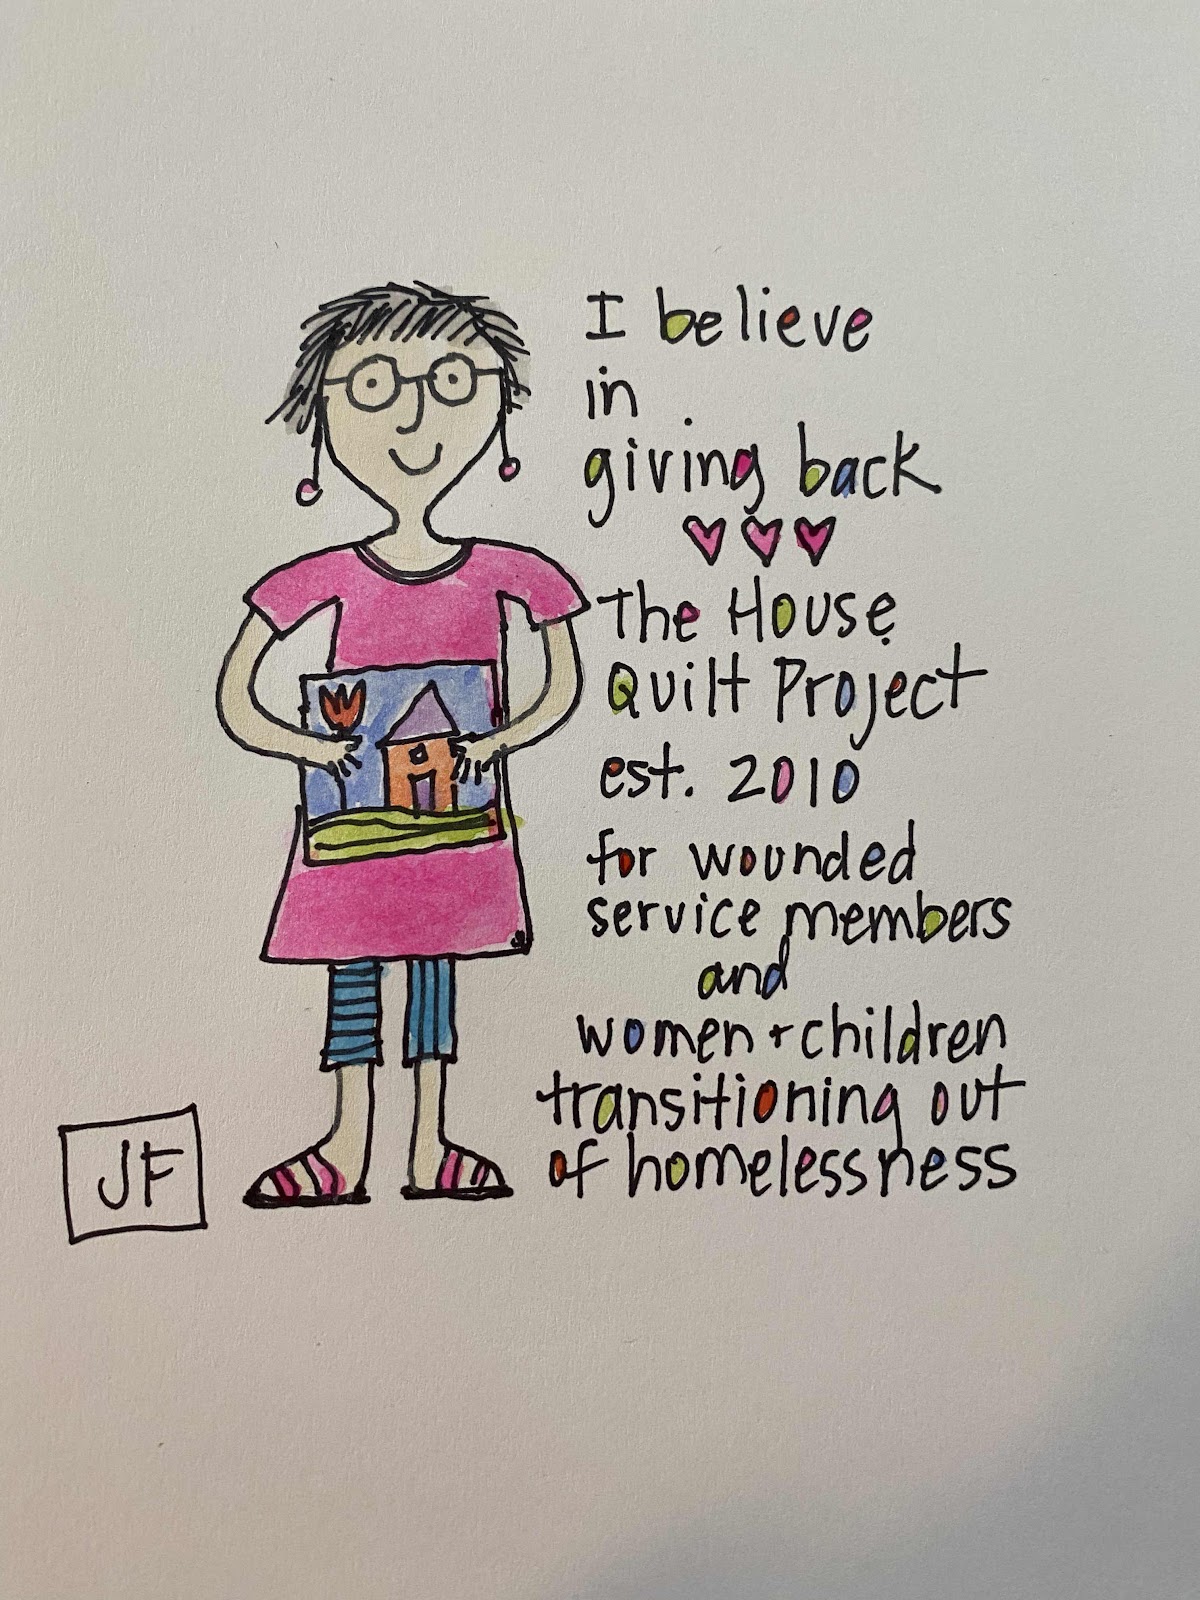 I believe
in
giving back
The House
Quilt Project
est. 2010
for wounded
service members
and
women + children
transitioning out
of homelessness
JF